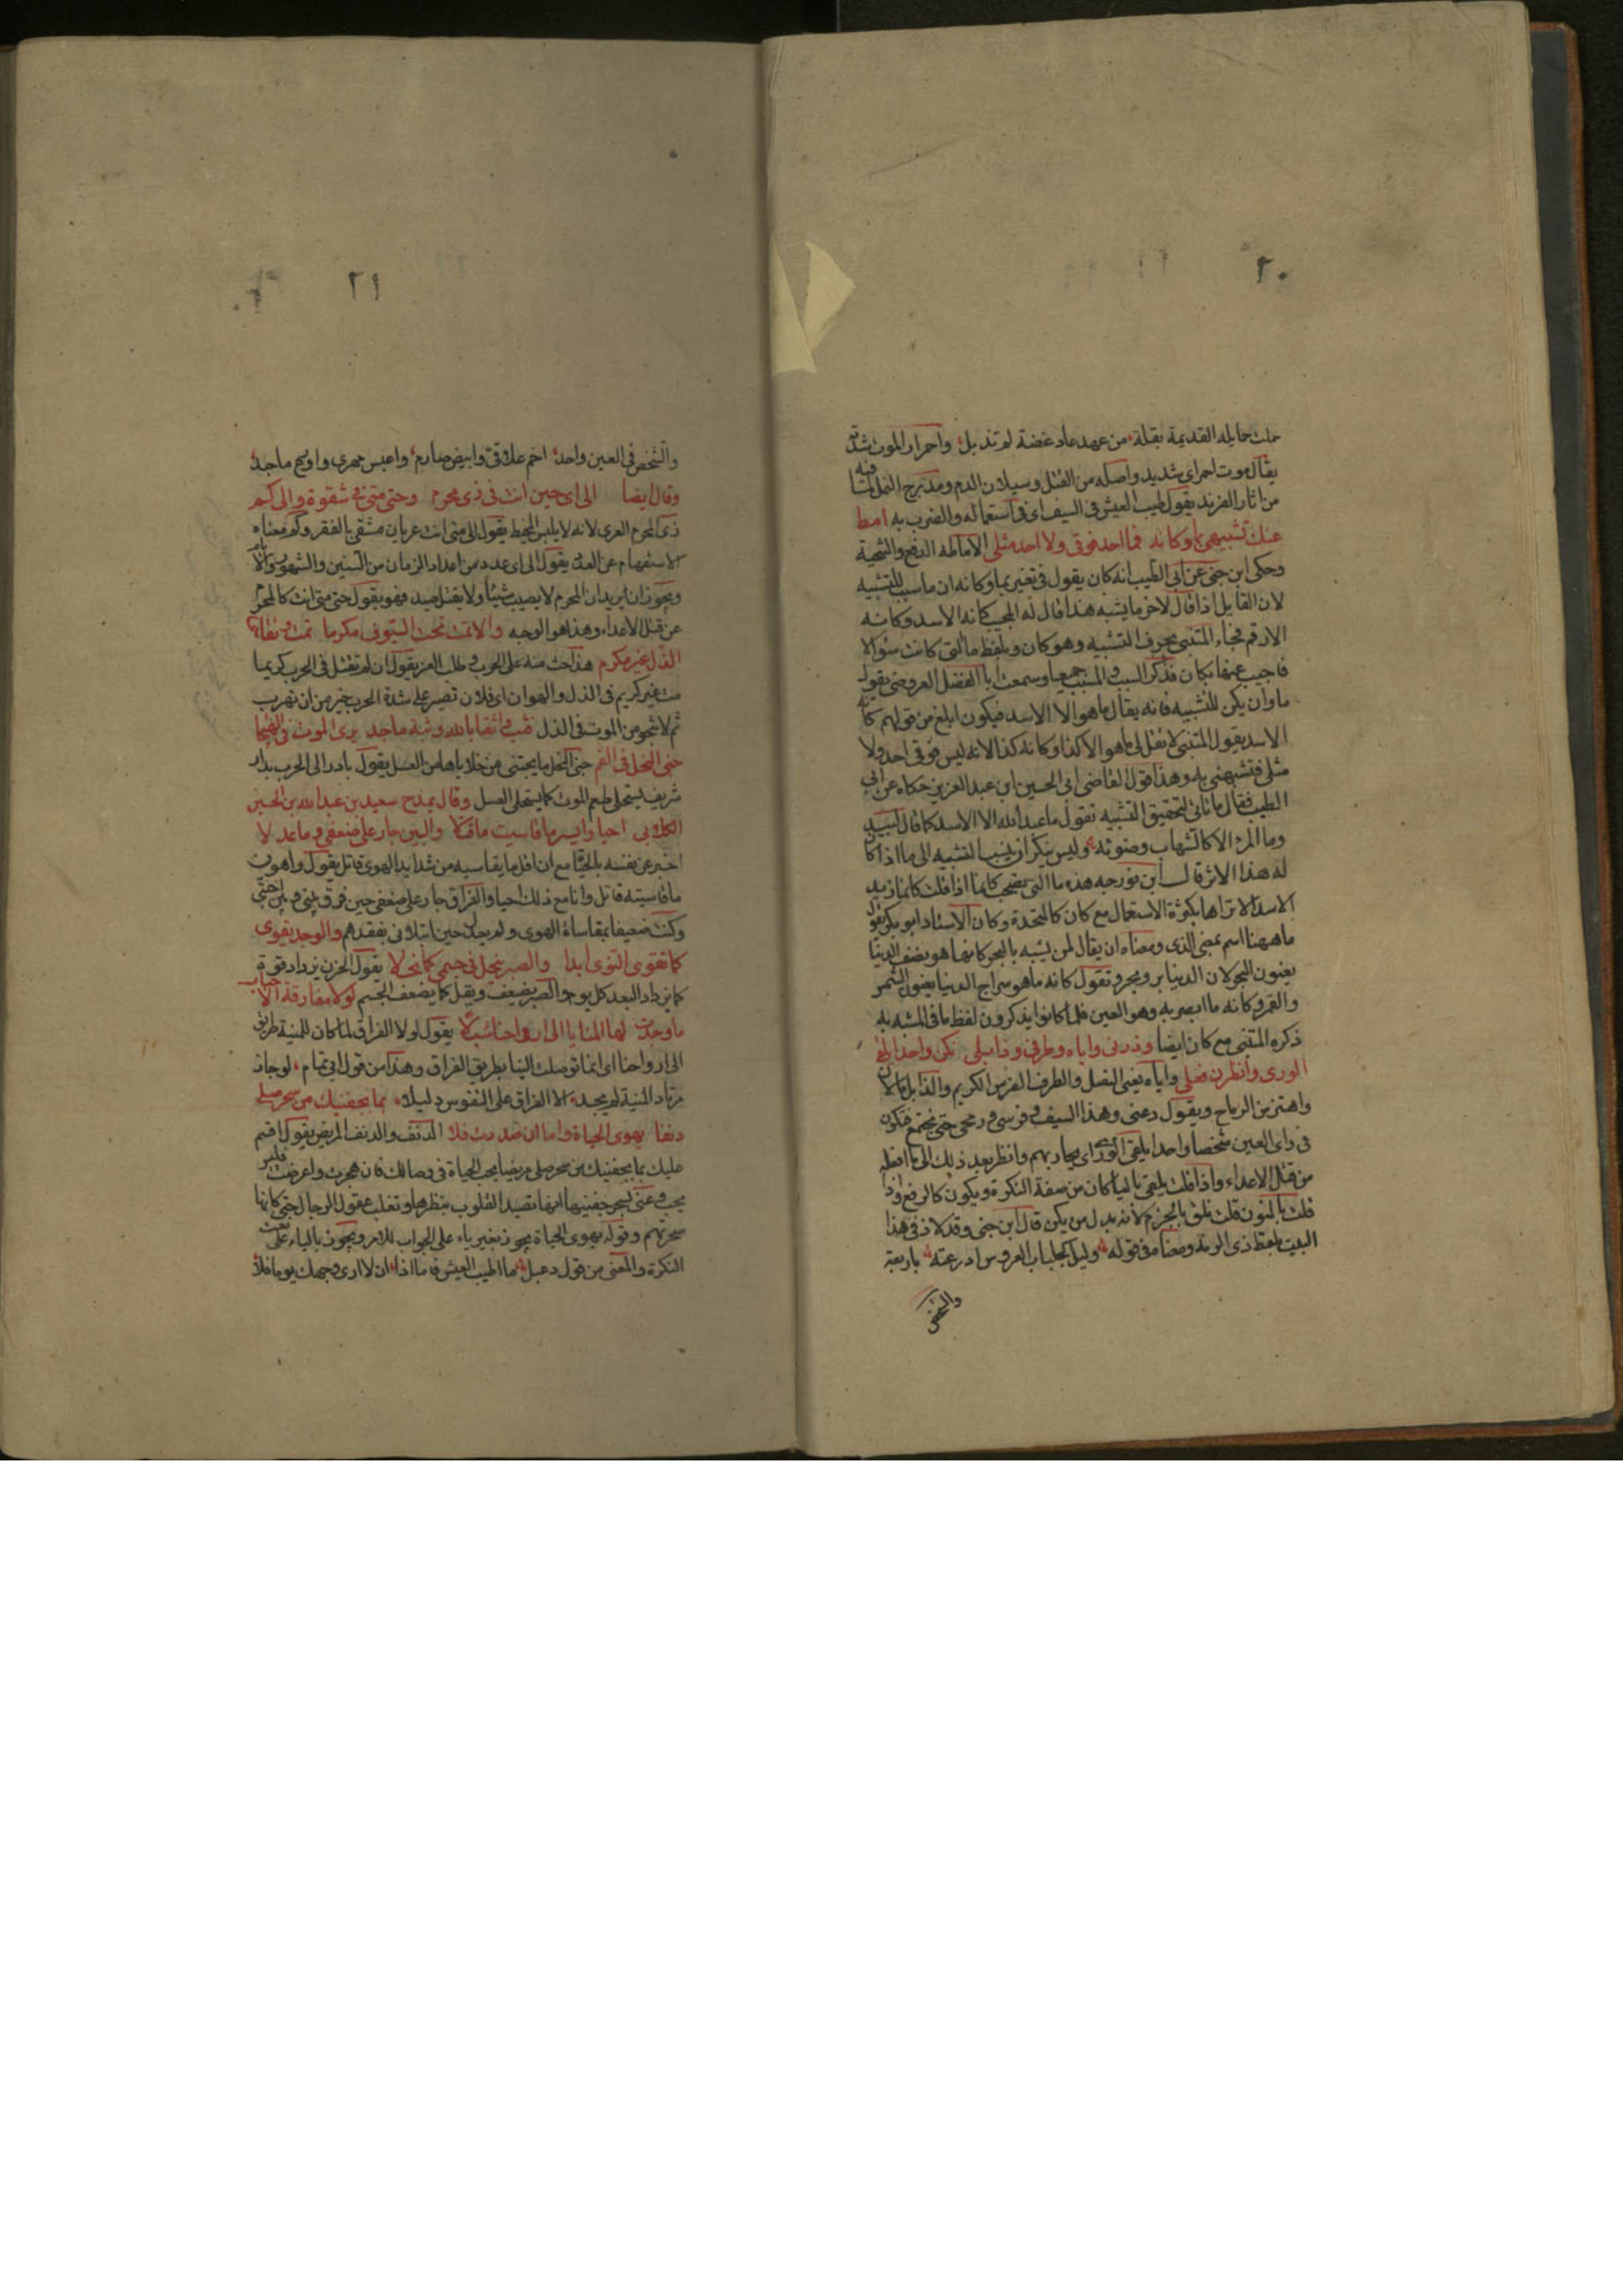 ٢٠
حملت حمايله القديمة بقلة من عهد عاد غضة لم تذبل واحمرار الموت شدته
يقال موت احمر اي شديد واصله من القتل وسيلان الدم ومدرج النمل لما فيه
من اثار الفرند يقول طيب العيش في السيف اي في استعماله والضرب به امط
عنك تشبيهي بما وكانه فما احد فوقي ولا احد مثلي الاماطة الدفع والتنحية
وحكى ابن جني عن ابي الطيب انه كان يقول في تفسير بما وكانه ان ما سبب للتشبيه
لان القايل اذا قال لاخر ما يشبه هذا قال له المجيب كانه الاسد وكانه
الارقم فجاء المتنبي بحرف التشبيه وهو كان وبلفظ ما التي كانت سؤالا
فاجيب عنها بكان فذكر السبب والمسبب جميعا وسمعت ابا الفضل العروضي يقول
ما وان يكن للتشبيه فانه يقال ما هو الا الاسد فيكون ابلغ من قولهم كانه
الاسد يقول المتنبي لا تقل لي ما هو الا كذا وكانه كذا لانه ليس فوقي احد ولا
مثلي فتشبهني به وهذا قول القاضي ابي الحسين ابن عبد العزيز حكاه عن ابي
الطيب فقال ما تاتي لتحقيق التشبيه تقول ما عبد الله الا الاسد كما قال لبيد
وما المرء الا كالشهاب وضوئه وليس ينكر ان ينسب التشبيه الى ما اذا كان
له هذا الاثر قال ابن فورجه هذه ما التي تصحب كانما اذا قلت كانما زيد
الاسد الا تراها بكثرة الاستعمال مع كان كالمتحدة وكان الاستاد ابو بكر يقول
ما ههنا اسم بمعنى الذي ومعناه ان يقال لمن يشبه بالبحر كانه ما هو نصف الدنيا
يعنون البحر لان الدنيا بر وبحر وتقول كانه ما هو سراج الدنيا يعنون الشمس
والقمر وكانه ما ابصر به وهو العين فلما كانوا يذكرون لفظ ما في المشبه به
ذكره المتنبي مع كان ايضا وذرني واياه وطرفي وذابلي نكن واحدا يلقى
الورى وانظرن فعلي واياه يعني النصل والطرف الفرس الكريم والذابل ما لان
واهتز من الرماح ويقول دعني وهذا السيف وفرسي ورمحي حتى نجتمع فنكون
في راي العين شخصا واحدا يلقى الورى اي يحاربهم وانظر بعد ذلك الى ما افعله
من قتل الاعداء واذا قلت يلقى باليا كان من صفة النكرة ويكون كالرفع واذا
قلت بالنون قلت نلق بالجزم لانه بدل من يكن قال ابن جني وقد لاذ في هذا
البيت بلفظ ذي الرمة ومعناه في قوله وليل كجلباب العروس ادرعته باربعة
والشخص
٢١
والشخص في العين واحد احم علافي وابيض صارم واعيس مهري واروع ماجد
وقال ايضا الى اي حين انت في زي محرم وحتى متى في شقوة والى كم
زي المحرم العري لانه لا يلبس المخيط يقول الى متى انت عريان مشقى بالفقر وكم معناه
الاستفهام عن العدد يقول الى اي عدد من اعداد الزمان من السنين والشهور والايام
ويجوز ان يريد ان المحرم لا يصيب شيئا ولا يقتل صيد فهو يقول حتى متى انت كالمحرم
عن قتل الاعداء وهذا هو الوجه والا تمت تحت السيوف مكرما تمت وتقاس
الذل غير مكرم هذا حث منه على الحرب وطلب العز يقول ان لم تقتل في الحرب كريما
مت غير كريم في الذل والهوان اي فلان تصبر على شدة الحرب خير من ان تهرب
ثم لا تنجو من الموت في الذل فثب واثقا بالله وثبة ماجد يرى الموت في الهيجا
جنى النحل في الفم جنى النحل ما يجتنى من خلاياها من العسل يقول بادر الى الحرب بدار
شريف يستحلي طعم الموت كما يستحلي العسل وقال يمدح سعيد بن عبد الله بن الحسين
الكلابي احيا وايسر ما قاسيت ما قتلا والبين جار على ضعفي وما عدلا
اخبر عن نفسه بالحياة مع ان اقل ما يقاسيه من شدايد الهوى قاتل يقول واهون
ما قاسيته قاتل وانا مع ذلك احيا والفراق جار على ضعفي حين فرق بيني وبين احبتي
وكنت ضعيفا بمقاساة الهوى ولم يعدل حين ابتلاني بفقدهم والوجد يقوى
كما تقوى النوى ابدا والصبر ينحل في جسمي كما نحلا يقول الحزن يزداد قوة
كما يزداد البعد كل يوم والصبر يضعف ويقل كما يضعف الجسم لولا مفارقة الاحباب
ما وجدت لها المنايا الى ارواحنا سبلا يقول لولا الفراق لما كان للمنية طريق
الى ارواحنا اي انما توصلت الينا بطريق الفراق وهذا من قول ابي تمام لو جاز
مرتاد المنية لم يجد الا الفراق على النفوس دليلا بما بجفنيك من سحر صلي
دنفا يهوى الحياة واما ان صددت فلا الدنف والدنف المريض يقول اقسم
عليك بما بجفنيك من سحر صلي مريضا يحب الحياة في وصالك فان هجرت واعرضت فليس
يحب وعنى بسحر جفنيها انها تصيد القلوب بنظرها وتغلب عقول الرجال حتى كانها
سحرتهم وقوله يهوى الحياة يجوز بغير ياء على الجواب للامر ويجوز بالياء على نعت
النكرة والمعنى من قول دعبل ما اطيب العيش فاما اذا ان لا ارى وجهك يوما فلا